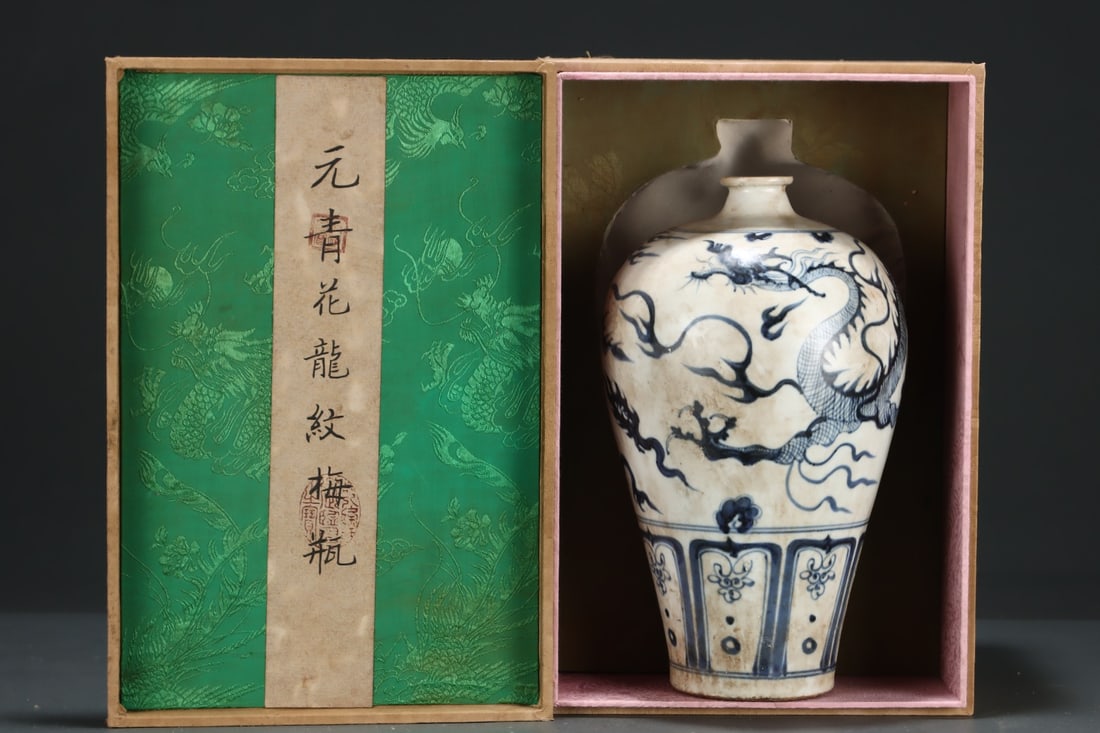 元青花龍紋梅瓶